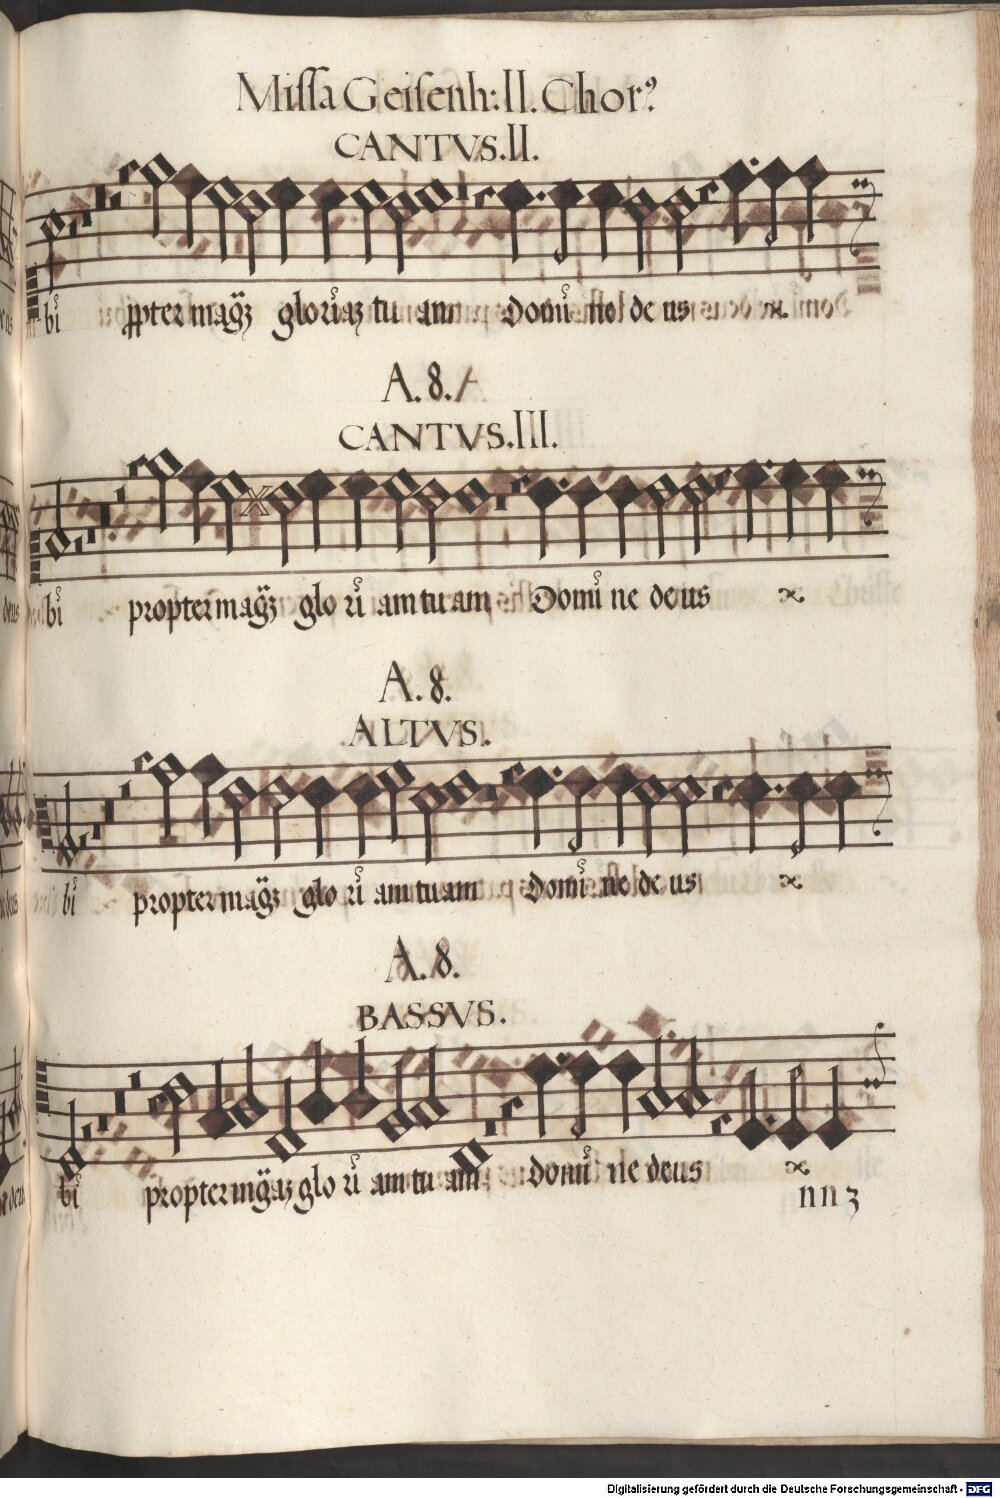 Missa Geisenh: II. Chor⁹
CANTVS. II.
bi ppter magẽ gloriaʒ tu am Domi ne de us
A. 8.
CANTVS. III.
bi propter magẽ glo ri am tu am Domi ne deus
A. 8.
ALTVS.
bi propter magẽ glo ri am tu am domi ne de us
A. 8.
BASSVS.
bi propter mg̃aʒ glo ri am tu am domi ne deus
nn 3
Digitalisierung gefördert durch die Deutsche Forschungsgemeinschaft - DFG